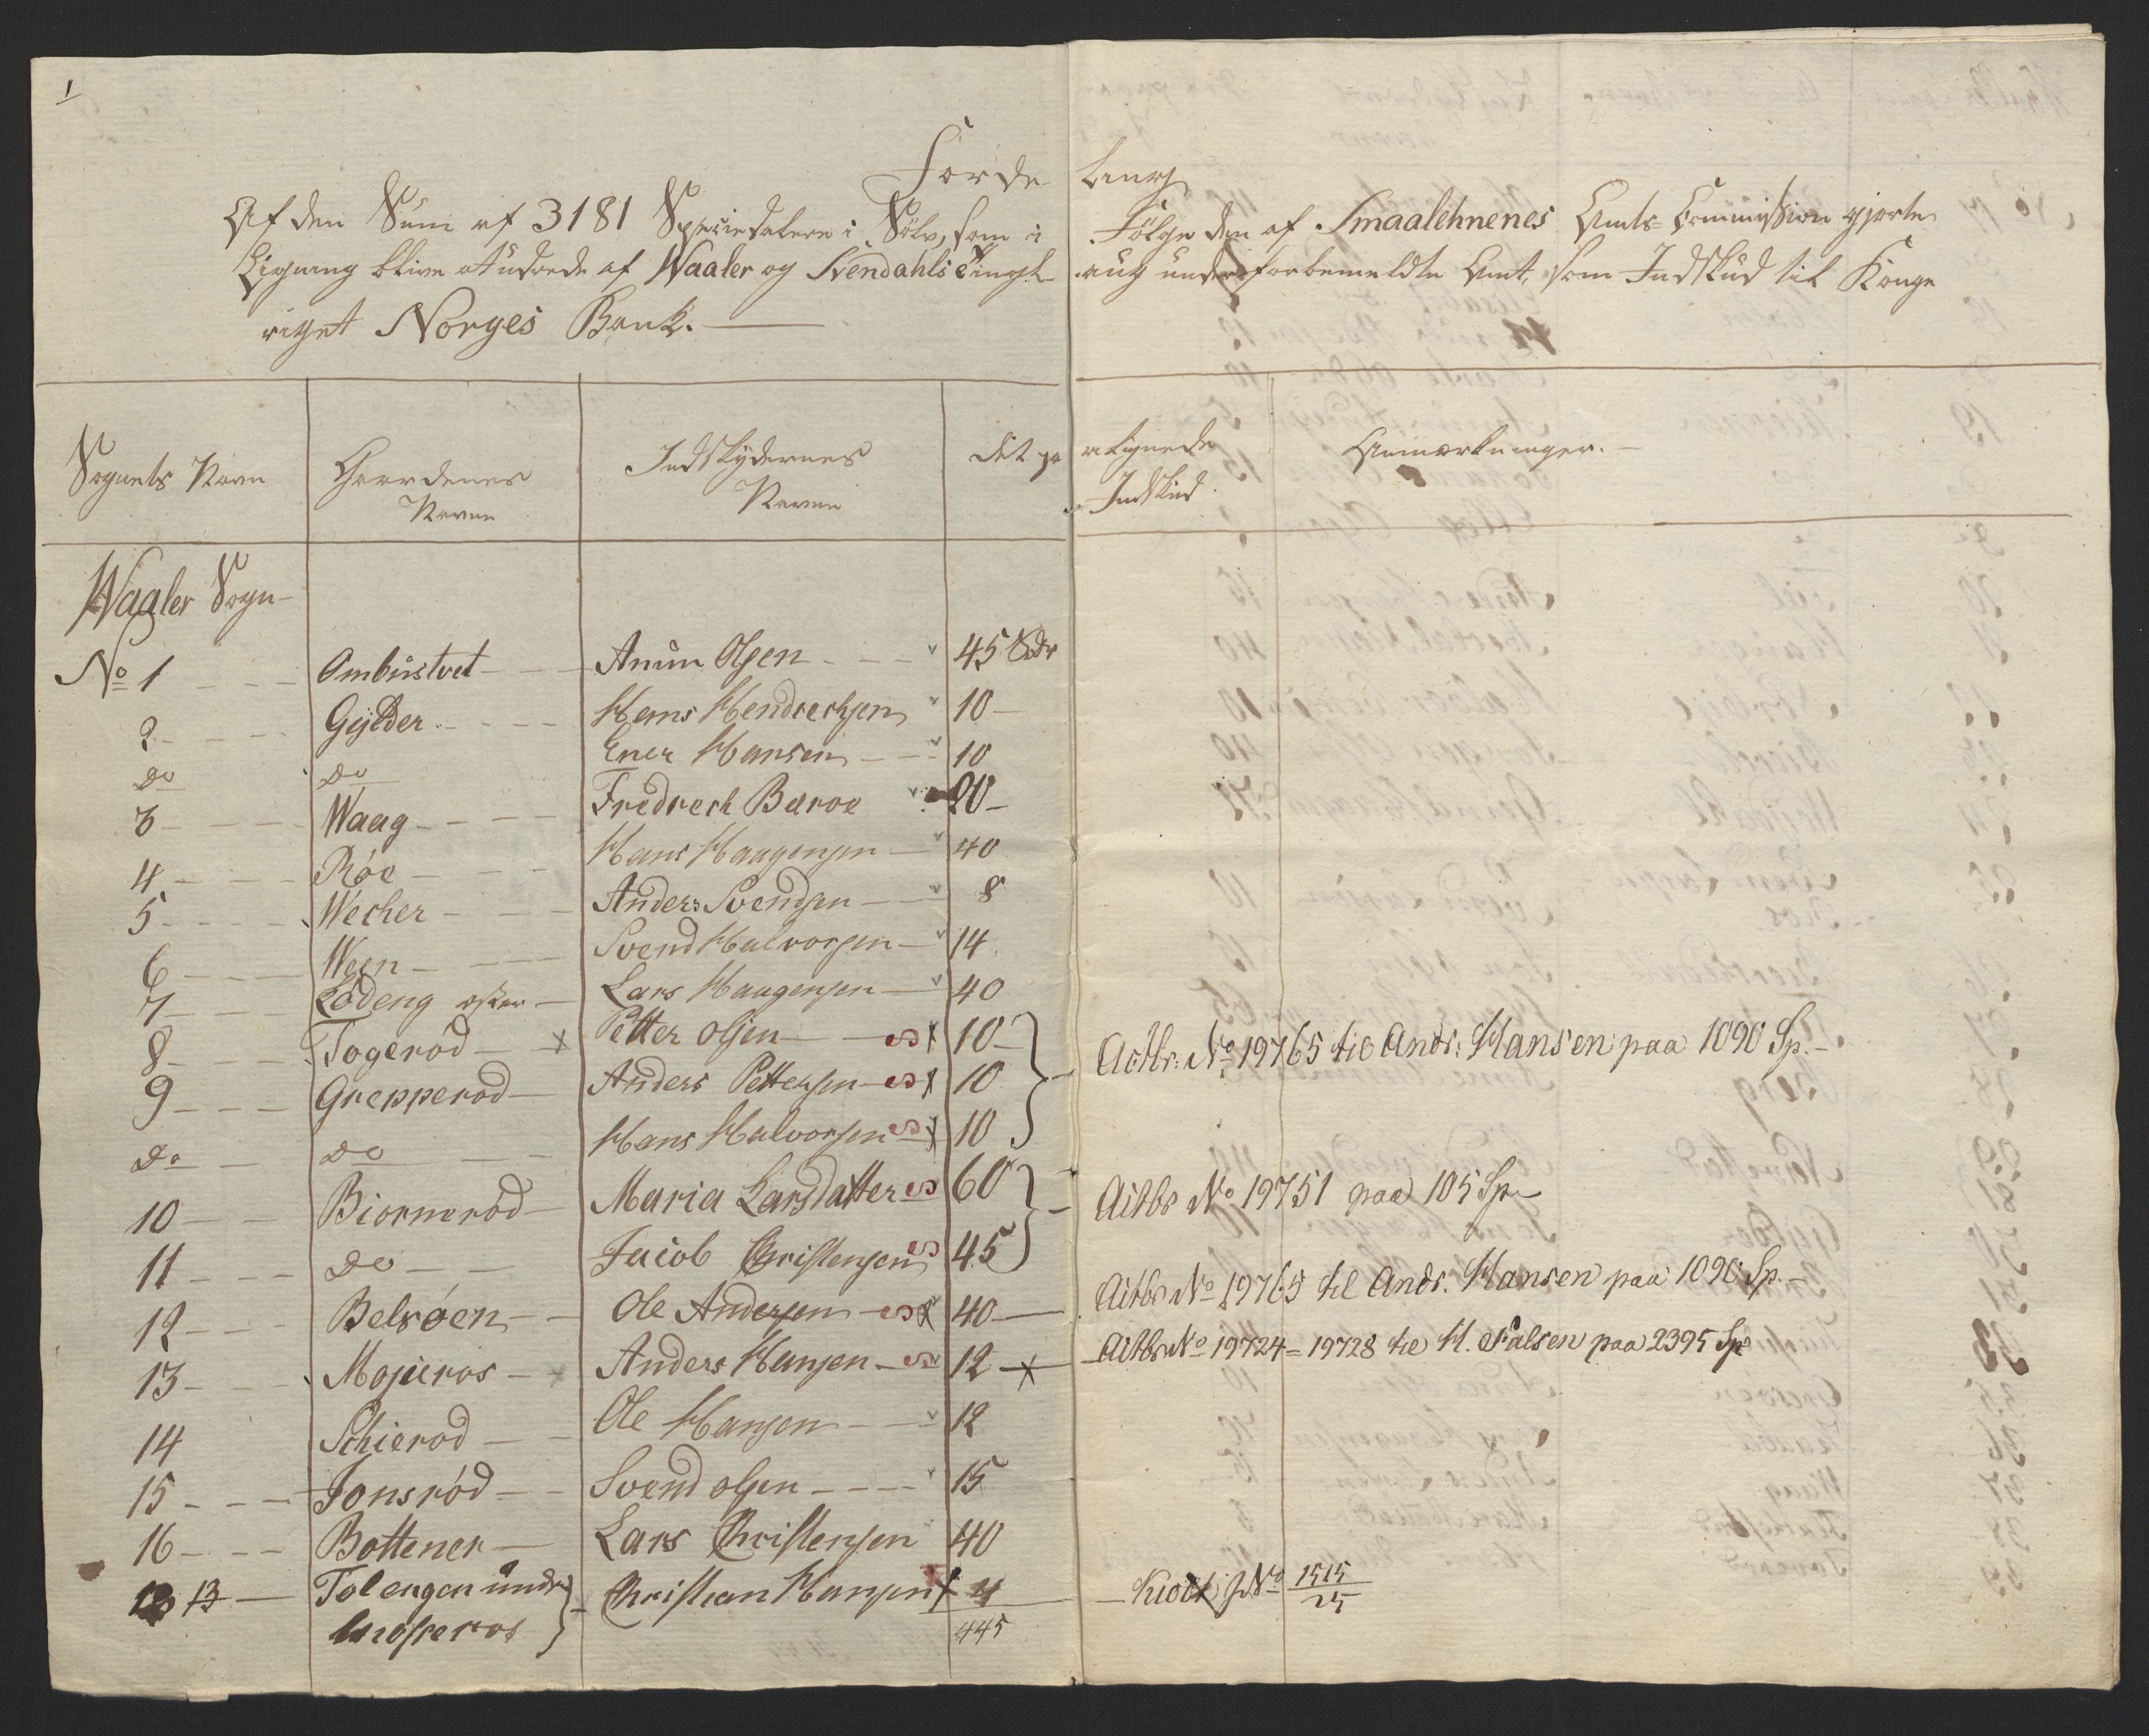 1
Fordeling
Af den Sum af 3181 Speciedalere i Sølv, som i Følge den af Smaalehnenes Amts-Commission gjorte
Ligning blive at udrede af Waaler og Svendahls Tinglaug under forbemeldte Amt, som Indskud til Konge
riget Norges Bank.
Sognets Navn Gaardenes Navne Indskydernes Navne Det paalignede Indskud Anmærkninger.
Waaler Sogn
No 1 Ombustvet Anun Olsen 45 Sdr
2 Gylder Hans Hendrechsen 10
do do Ener Hansen 10
3 Waag Fredrech Bæroe 20
4 Røe Hans Haagensen 40
5 Wecher Anders Svendsen 8
6 Ween Svend Halvorsen 14
7 Lødeng øster Lars Haagensen 40
8 Togerød Petter Olsen 10
Actbr: No 19765 til Andr: Hansen paa 1090 Sp.
9 Grepperød Anders Pettersen 10
do do Hans Halvorsen 10
10 Biørnerød Maria Larsdatter 60
Actbr No 19751 paa 105 Sp
11 do Jacob Christensen 45
12 Belsøen Ole Andersen 40 Actbr No 19765 til Andr. Hansen paa 1090 Sp.
13 Mosseros Anders Hansen 12 Actbr No 19724 = 19728 til H. Falsen paa 2395 Sp
14 Schierød Ole Hansen 12
15 Jonsrød Svend Olsen 15
16 Bottener Lars Christensen 40
13 Tolengen under Christian Hansen 4 No 1515/25
Mosseros
445